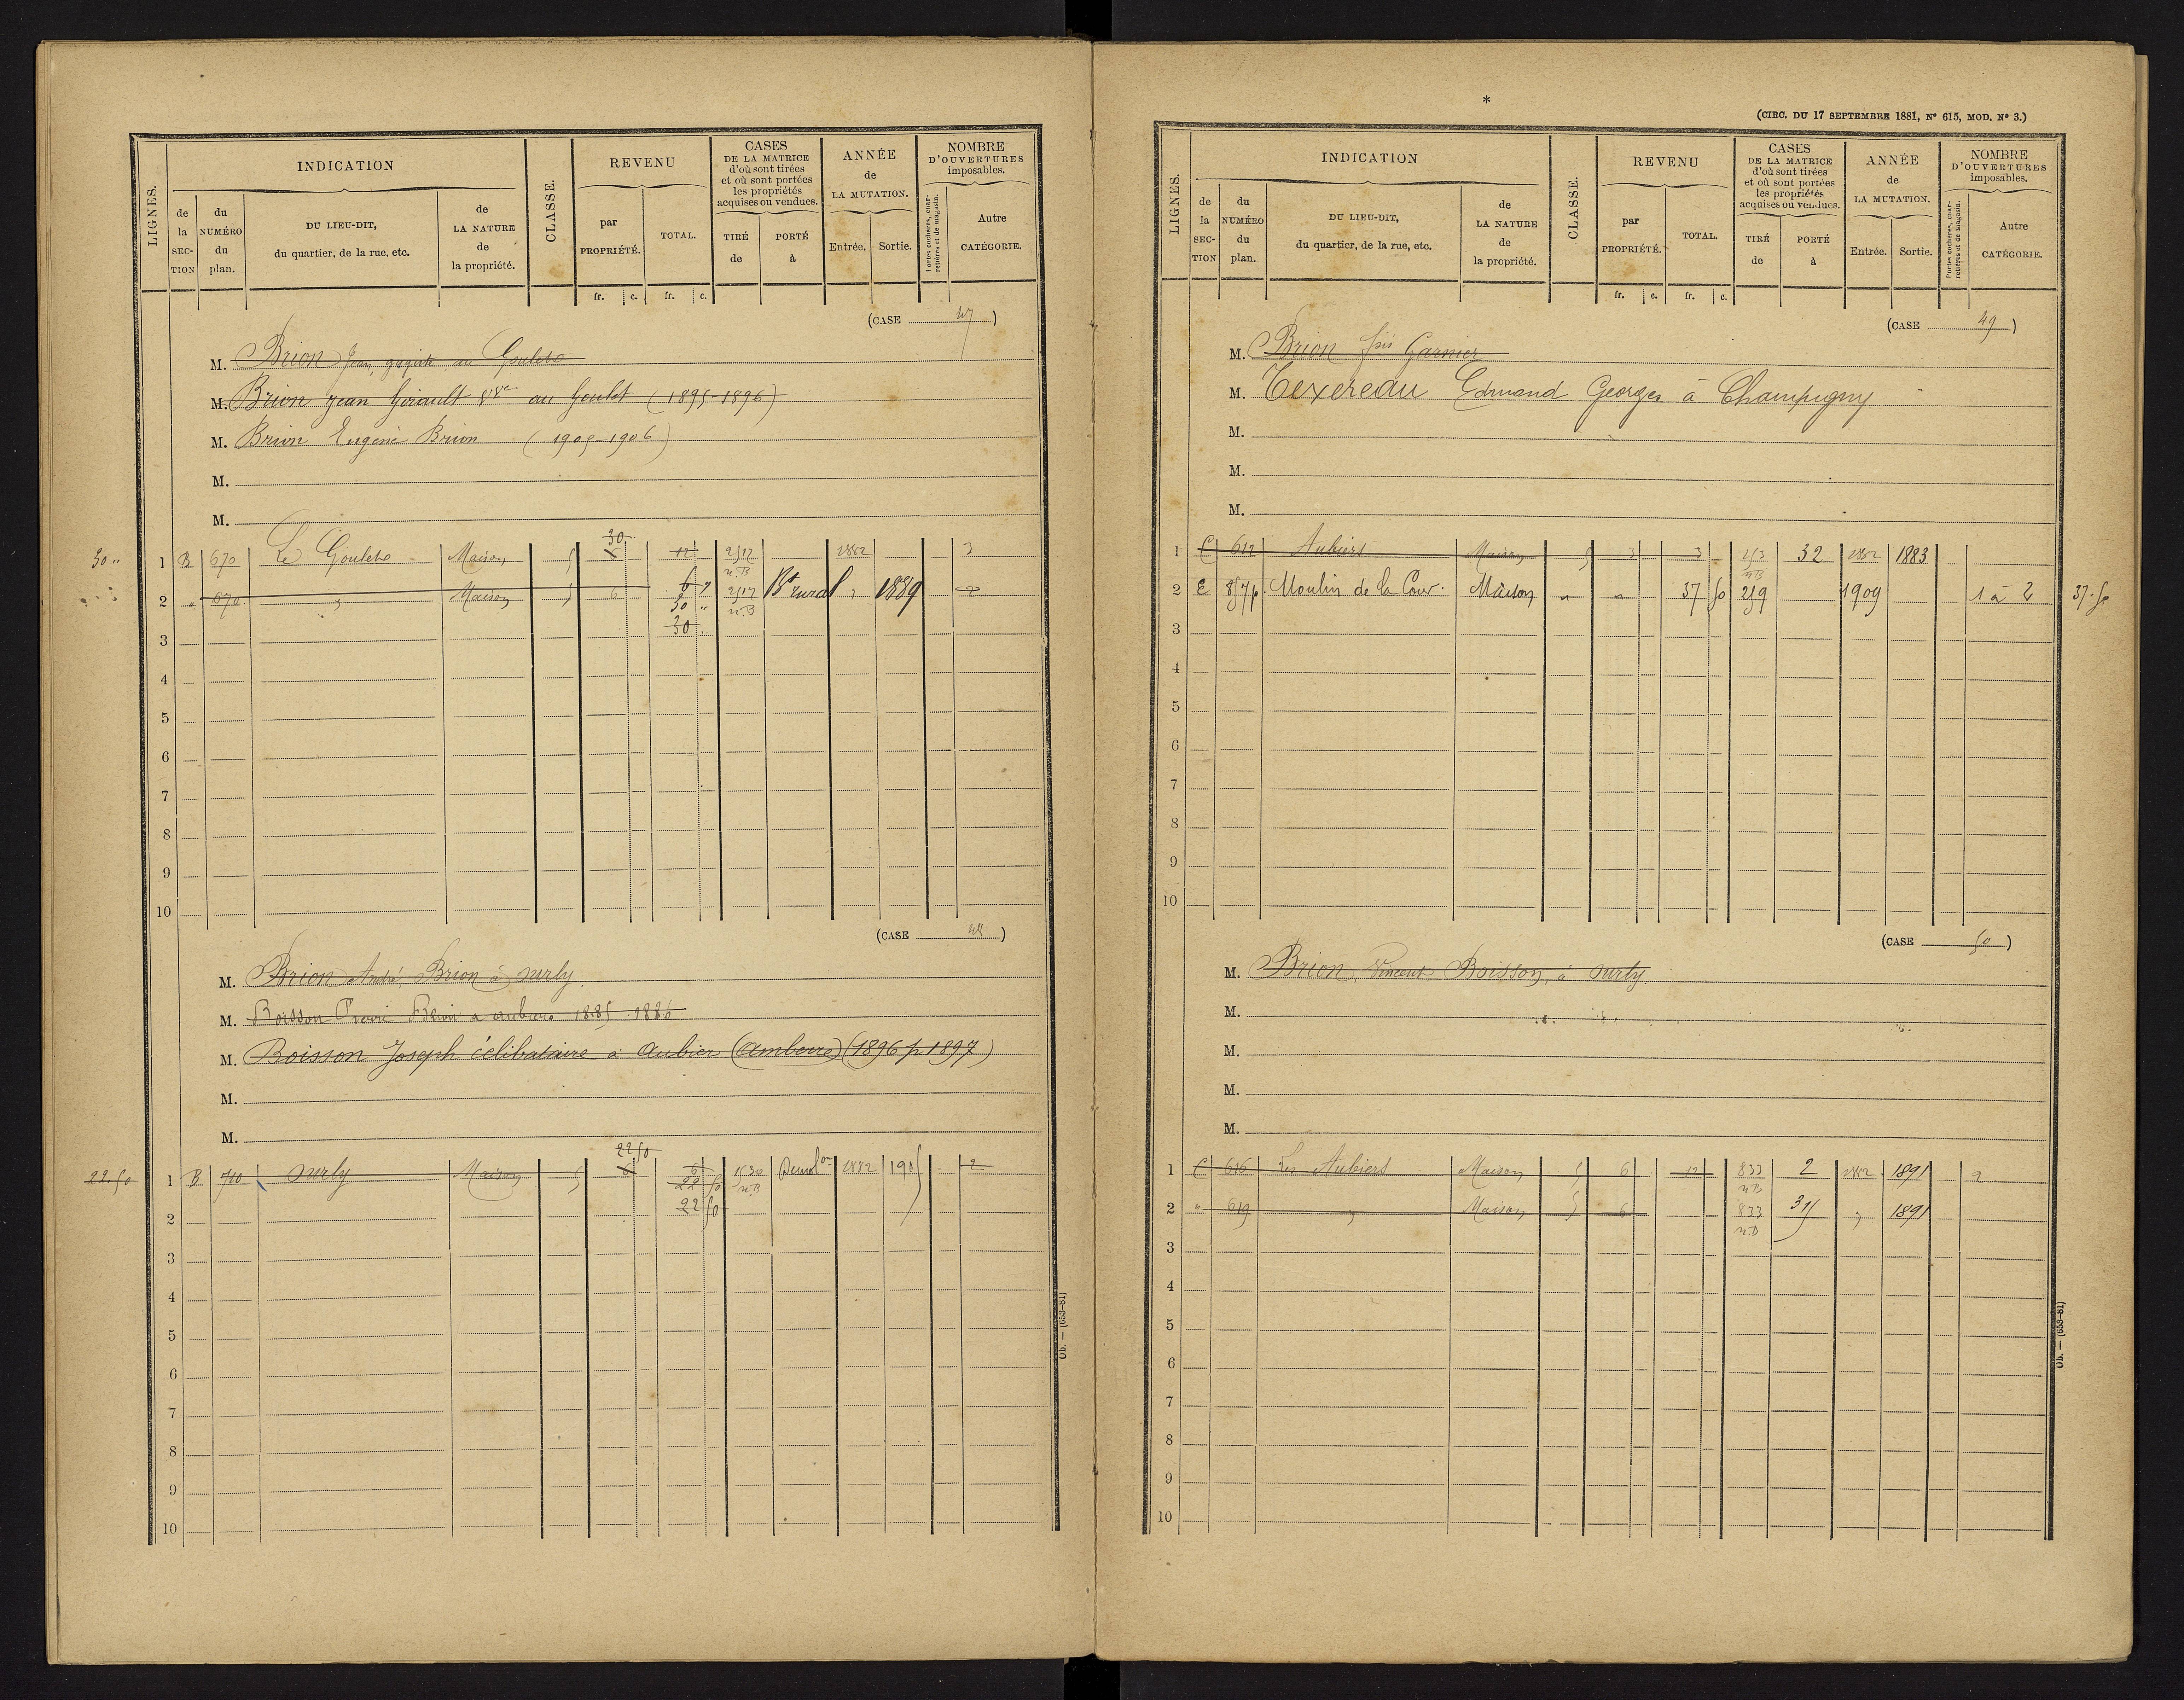 LIGNES.
INDICATION
de la SEC-TION
du NUMÉRO du plan.
DU LIEU-DIT, du quartier, de la rue, etc.
de LA NATURE de la propriété.
CLASSE.
REVENU
par PROPRIÉTÉ.
TOTAL.
fr. c. fr. c.
CASES DE LA MATRICE d'où sont tirées et où sont portées les propriétés acquises ou vendues.
TIRÉ de
PORTÉ à
ANNÉE de LA MUTATION.
Entrée. Sortie.
NOMBRE D'OUVERTURES imposables.
Portes cochères, charretières et de magasin.
Autre CATÉGORIE.
(CASE 47)
M. Brion Jean, au Goulet
M. Brion Jean Girault Vve au Goulet (1895-1896)
M. Brion Eugène Brion (1905-1906)
M.
M.
30 "
1 B 670 Le Goulet Maison 5 30 12 2517 n.B 1882 3
2 " 670 " Maison 5 6 6 2517 n.B Bt rural " 1889
30 "
3 30
4
5
6
7
8
9
10
(CASE 48)
M. Brion André, Brion à Surly
M. Boisson Pierre Brion à aubiers 1885 1886
M. Boisson Joseph célibataire à Aubier (Amberre) (1896 p 1897)
M.
M.
22.50
22 50
1 B 710 Surly Maison 5 6 6 1530 n.B Démolon 1882 1905 2
22 50
2 22 50
3
4
5
6
7
8
9
10
Ob. — (653-81)
*
(CIRC. DU 17 SEPTEMBRE 1881, N° 615, MOD. N° 3.)
LIGNES.
INDICATION
de la SEC-TION
du NUMÉRO du plan.
DU LIEU-DIT, du quartier, de la rue, etc.
de LA NATURE de la propriété.
CLASSE.
REVENU
par PROPRIÉTÉ.
TOTAL.
fr. c. fr. c.
CASES DE LA MATRICE d'où sont tirées et où sont portées les propriétés acquises ou vendues.
TIRÉ de
PORTÉ à
ANNÉE de LA MUTATION.
Entrée. Sortie.
NOMBRE D'OUVERTURES imposables.
Portes cochères, charretières et de magasin.
Autre CATÉGORIE.
(CASE 49)
M. Brion frs Garnier
M. Texereau Edmand Georges à Champigny
M.
M.
M.
1 C 612 Aubiers Maison 5 3 3 253 n.B 32 1882 1883
2 E 857p. Moulin de la Cour. Maison " " 37 50 259 1909 1 à 2 37.50
3
4
5
6
7
8
9
10
(CASE 50)
M. Brion, Vincent Boisson, à Surly
M.
M.
M.
M.
1 C 616 Les Aubiers Maison 5 6 12 833 n.B 2 1882 1891 2
2 " 619 " Maison 5 6 833 n.B " 1891
3
4
5
6
7
8
9
10
Ob. — (653-81)